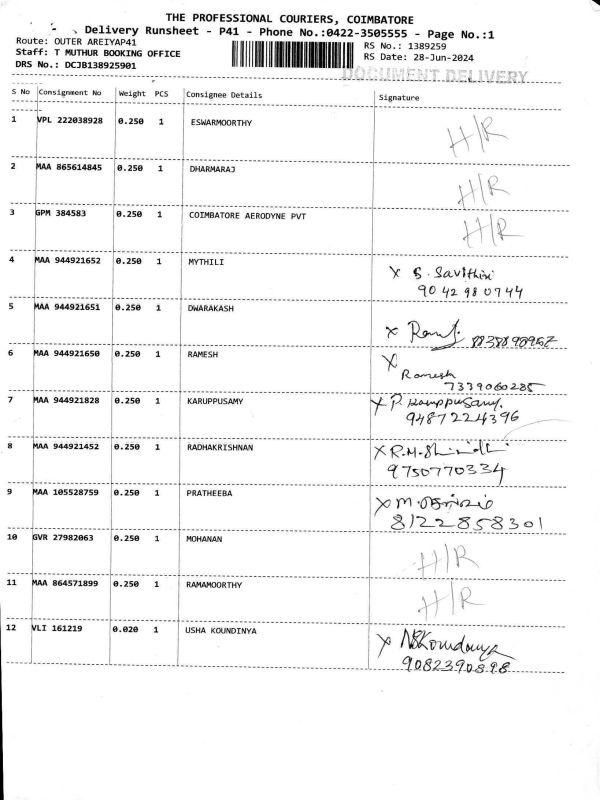 THE PROFESSIONAL COURIERS, COIMBATORE
Delivery Runsheet - P41 - Phone No.:0422-3505555 - Page No.:1
Route: OUTER AREIYAP41
Staff: T MUTHUR BOOKING OFFICE
DRS No.: DCJB138925901
RS No.: 1389259
RS Date: 28-Jun-2024
DOCUMENT DELIVERY
S No Consignment No Weight PCS Consignee Details Signature
1 VPL 222038928 0.250 1 ESWARMOORTHY H/R
2 MAA 865614845 0.250 1 DHARMARAJ H/R
3 GPM 384583 0.250 1 COIMBATORE AERODYNE PVT H/R
4 MAA 944921652 0.250 1 MYTHILI X S. Savithiri
90 42 98 0744
5 MAA 944921651 0.250 1 DWARAKASH X
6 MAA 944921650 0.250 1 RAMESH X
Ramesh
7339060285
7 MAA 944921828 0.250 1 KARUPPUSAMY X P. Karuppusamy.
9487224396
8 MAA 944921452 0.250 1 RADHAKRISHNAN X R.M.
9750770334
9 MAA 105528759 0.250 1 PRATHEEBA X M.
8122858301
10 GVR 27982063 0.250 1 MOHANAN H/R
11 MAA 864571899 0.250 1 RAMAMOORTHY H/R
12 VLI 161219 0.020 1 USHA KOUNDINYA X NSKoundinya
9082390898